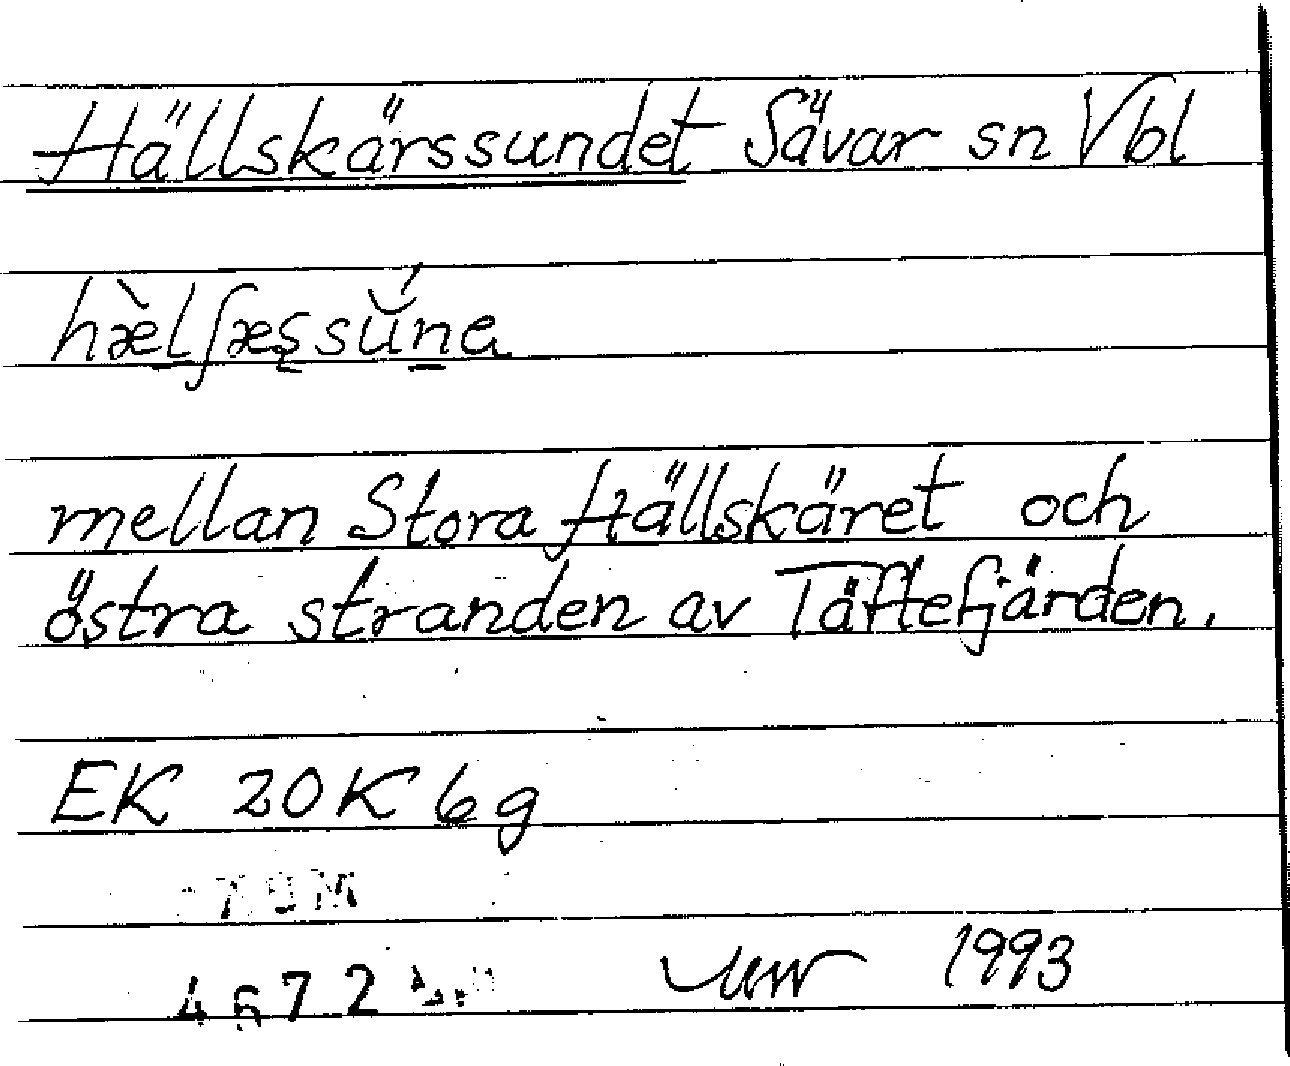 Hällskärssundet Sävar sn Vbl
hæ̀lʃæşsŭ́na
mellan Stora Hällskäret och
östra stranden av Täftefjärden.
EK 20K 6g
1993